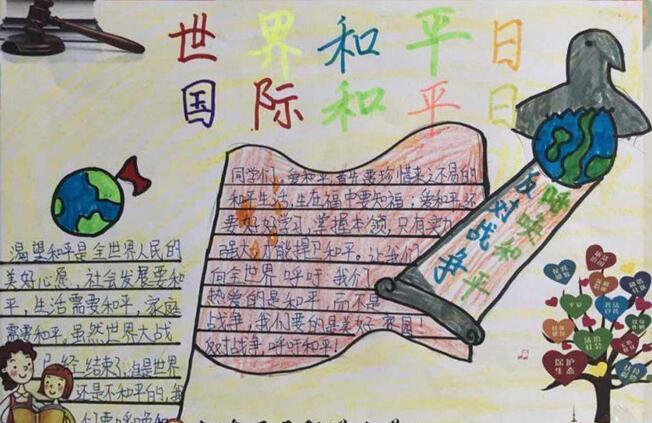 世界和平日
国际和平日
同学们,爱和平,首先要珍惜来之不易的
和平生活,生在福中要知福;爱和平还
要好好学习,掌握本领,只有实力
强大,才能捍卫和平。让我们
向全世界呼吁:我们
热爱的是和平,而不是
战争,我们要的是美好家园!
反对战争,呼吁和平!
呼唤和平
反对战争
渴望和平是全世界人民的
美好心愿,社会发展要和
平,生活需要和平,家庭
需要和平。虽然世界大战
已经结束了,但是世界
还是不和平的,我
们要呼唤和
保护
生态